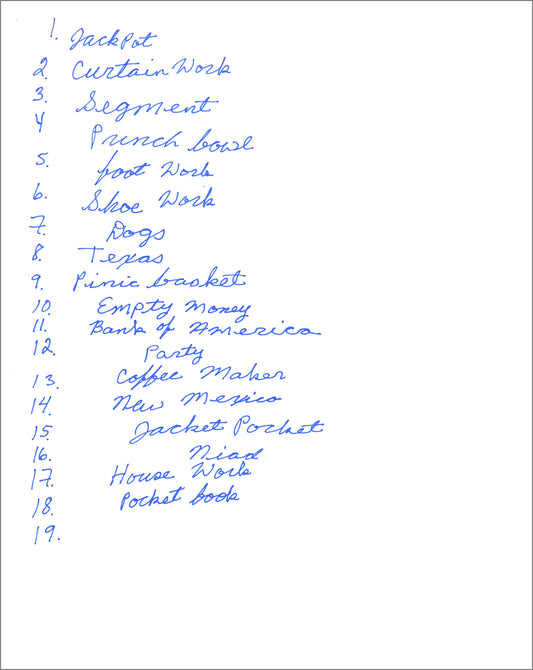 1. JackPot
2. Curtain Work
3. Segment
4 Prunch bowl
5. foot Work
6. Shoe Work
7. Dogs
8. Texas
9. Pinic basket
10. Empty Money
11. Bank of America
12. Party
13. Coffee Maker
14. New Mexico
15. Jacket Pocket
16. Niad
17. House Work
18. Pocket book
19.